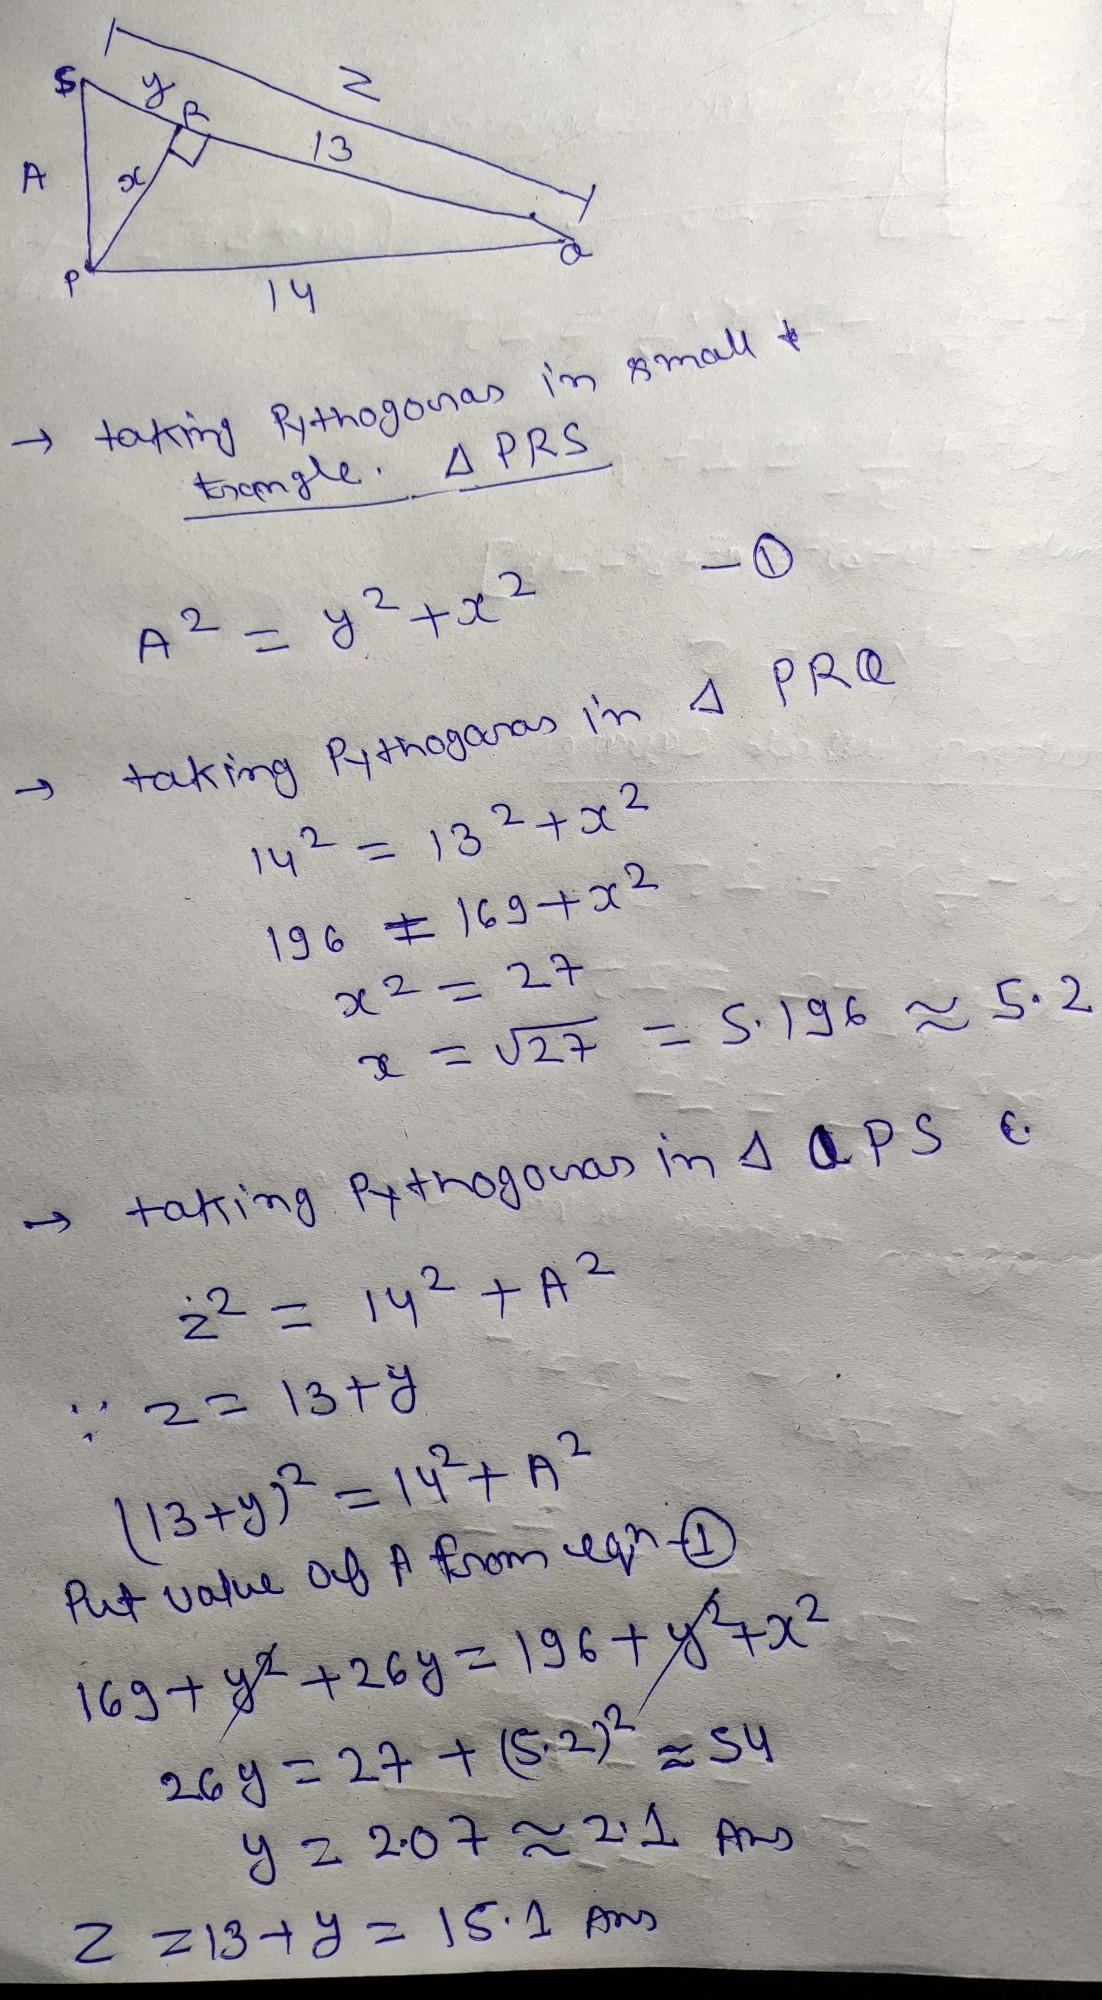 S y R z
13
A x
P 14 Q
→ taking Pythogoras in small t
triangle. Δ PRS
A² = y² + x² — ①
→ taking Pythogoras in Δ PRQ
14² = 13² + x²
196 = 169 + x²
x² = 27
x = √27 = 5.196 ≈ 5.2
→ taking Pythogoras in Δ QPS
z² = 14² + A²
∵ z = 13 + y
(13+y)² = 14² + A²
Put value of A from eqn - ①
169 + y² + 26y = 196 + y² + x²
26y = 27 + (5.2)² ≈ 54
y = 2.07 ≈ 2.1 Ans
z = 13 + y = 15.1 Ans